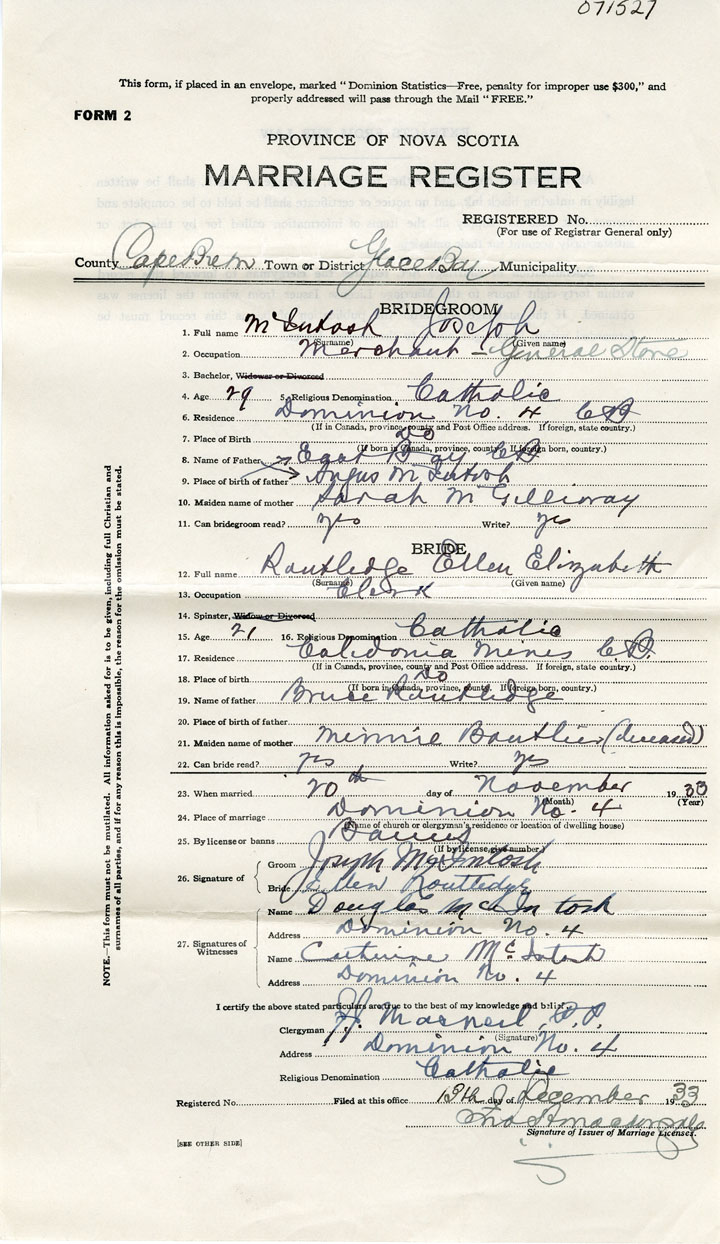 071527
This form, if placed in an envelope, marked "Dominion Statistics—Free, penalty for improper use $300," and
properly addressed will pass through the Mail "FREE."
FORM 2
PROVINCE OF NOVA SCOTIA
MARRIAGE REGISTER
REGISTERED No.
(For use of Registrar General only)
County Cape Breton Town or District Glace Bay Municipality
BRIDEGROOM
1. Full name McIntosh Joseph
(Surname) (Given name)
2. Occupation Merchant - General Store
3. Bachelor, Widower or Divorced
4. Age 29 5. Religious Denomination Catholic
6. Residence Dominion No. 4 C B
(If in Canada, province, county and Post Office address. If foreign, state country.)
7. Place of Birth Do
(If born in Canada, province, county. If foreign born, country.)
8. Name of Father East Bay C B
9. Place of birth of father Angus McIntosh
10. Maiden name of mother Sarah McGillivray
11. Can bridegroom read? yes Write? yes
BRIDE
12. Full name Routledge Ellen Elizabeth
(Surname) (Given name)
13. Occupation Clerk
14. Spinster, Widow or Divorced
15. Age 21 16. Religious Denomination Catholic
17. Residence Caledonia Mines C.B.
(If in Canada, province, county and Post Office address. If foreign, state country.)
18. Place of birth Do
(If born in Canada, province, county. If foreign born, country.)
19. Name of father Bruce Routledge
20. Place of birth of father
21. Maiden name of mother Minnie Boutlier (deceased)
22. Can bride read? yes Write? yes
23. When married 20th day of November 1933
(Month) (Year)
24. Place of marriage Dominion No. 4
(Name of church or clergyman's residence or location of dwelling house)
25. By license or banns Banns
(If by license, give number)
26. Signature of Groom Joseph McIntosh
Bride Ellen Routledge
27. Signatures of Witnesses
Name Douglas McIntosh
Address Dominion No. 4
Name Catherine McIntosh
Address Dominion No. 4
I certify the above stated particulars are true to the best of my knowledge and belief.
Clergyman MacNeil, P.P.
(Signature)
Address Dominion No. 4
Religious Denomination Catholic
Registered No. Filed at this office 13th day of December 1933
Signature of Issuer of Marriage Licenses.
[SEE OTHER SIDE]
NOTE.—This form must not be mutilated. All information asked for is to be given, including full Christian and
surnames of all parties, and if for any reason this is impossible, the reason for the omission must be stated.